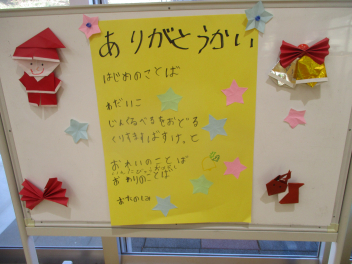 ありがとうかい
はじめのことば
わだいこ
じんぐるべるをおどる
くりすますばすけっと
おわりのことば
おたのしみ